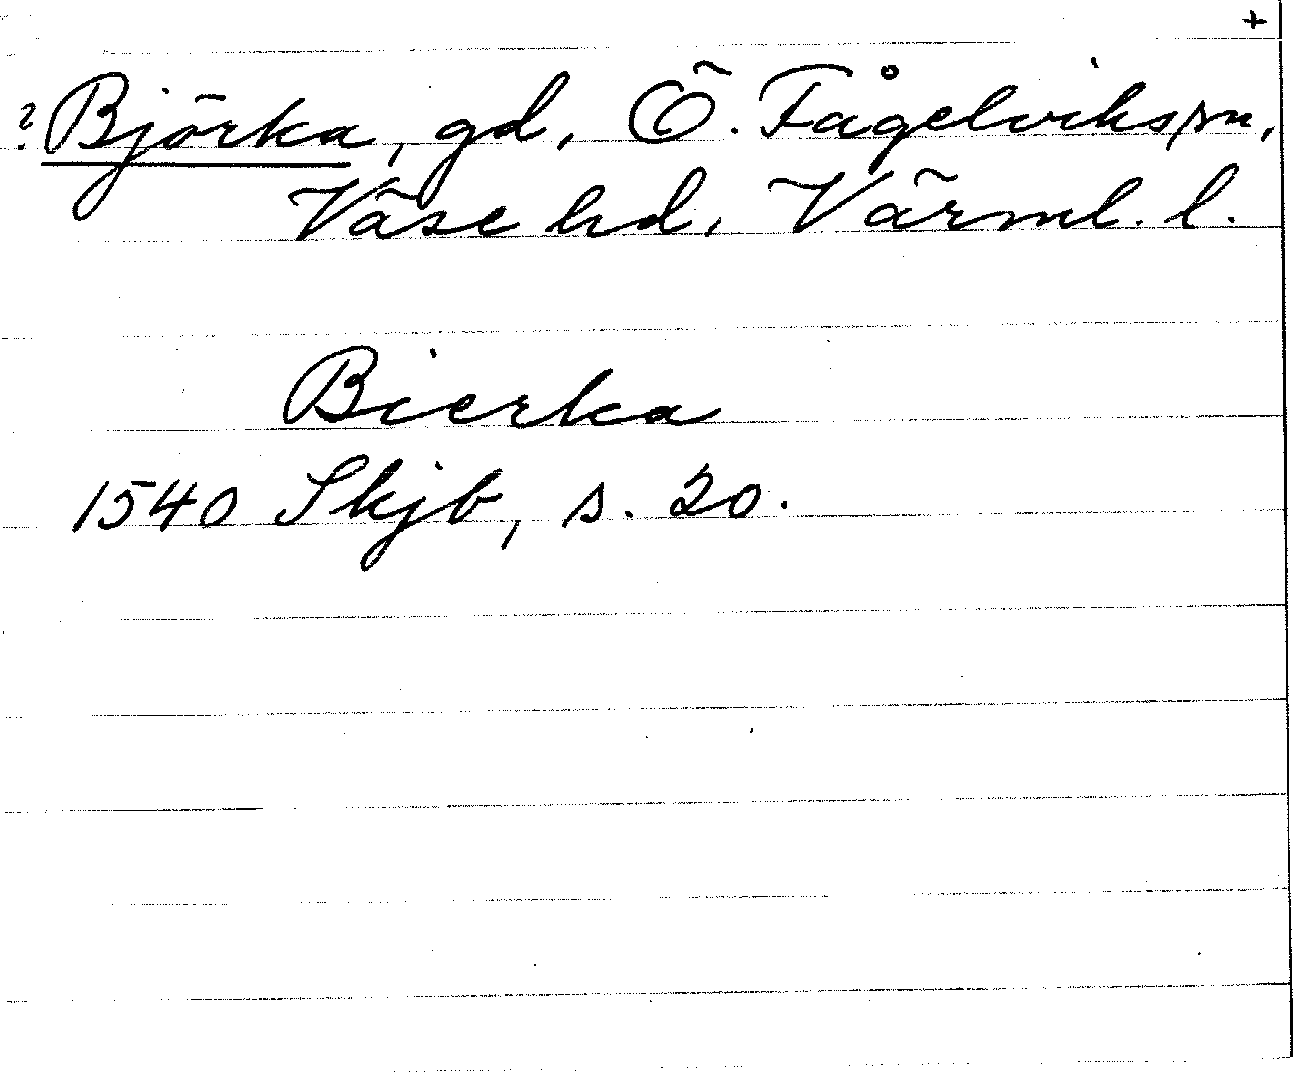 +
? Björka, gd, Ö. Fågelviks sn,
Väse hd, Värml. l.
Bierka
1540 Skjb, s. 20.